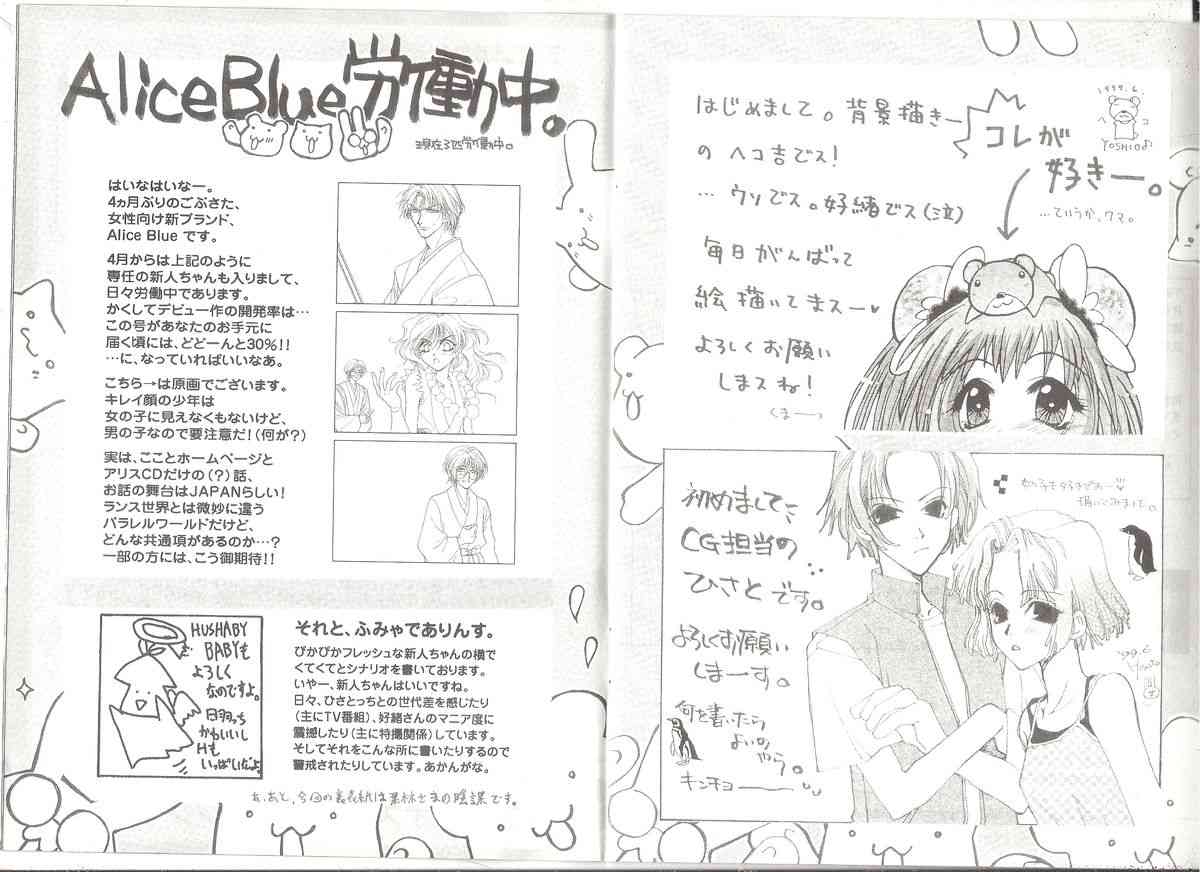 AliceBlue労働中。
現在3匹労働中。
はいなはいなー。
4ヵ月ぶりのごぶさた、
女性向け新ブランド、
Alice Blue です。
4月からは上記のように
専任の新人ちゃんも入りまして、
日々労働中であります。
かくしてデビュー作の開発率は…
この号があなたのお手元に
届く頃には、どどーんと30%!!
…に、なっていればいいなあ。
こちら→は原画でございます。
キレイ顔の少年は
女の子に見えなくもないけど、
男の子なので要注意だ!(何が?)
実は、こことホームページと
アリスCDだけの(?)話、
お話の舞台はJAPANらしい!
ランス世界とは微妙に違う
パラレルワールドだけど、
どんな共通項があるのか…?
一部の方には、こう御期待!!
HUSHABY
BABYも
よろしく
なのですよ。
かわいいし
Hも
いっぱいだよ
それと、ふみゃでありんす。
ぴかぴかフレッシュな新人ちゃんの横で
くてくてとシナリオを書いております。
いやー、新人ちゃんはいいですね。
日々、ひさとっちとの世代差を感じたり
(主にTV番組)、好緒さんのマニア度に
震撼したり(主に特撮関係)しています。
そしてそれをこんな所に書いたりするので
警戒されたりしています。あかんがな。
あ、あと、今回の裏表紙は果林さまの陰謀です。
はじめまして。背景描きー
の ヘコ吉でス!
… ウソでス。好緒でス(泣)
毎日がんばって
絵 描いてまスー♥
よろしくお願い
しまスね!
くまーっ
コレが
好きー。
…ていうか、クマ。
1999.6
ヘコ
YOSHIO
初めまして、
CG担当の
ひさとです。
よろしくお願い
しまーす。
何を書いたら
よいのやら。
キンチョー
女の子も好きでスー♥
描いてみました。
'99.6
Hisato